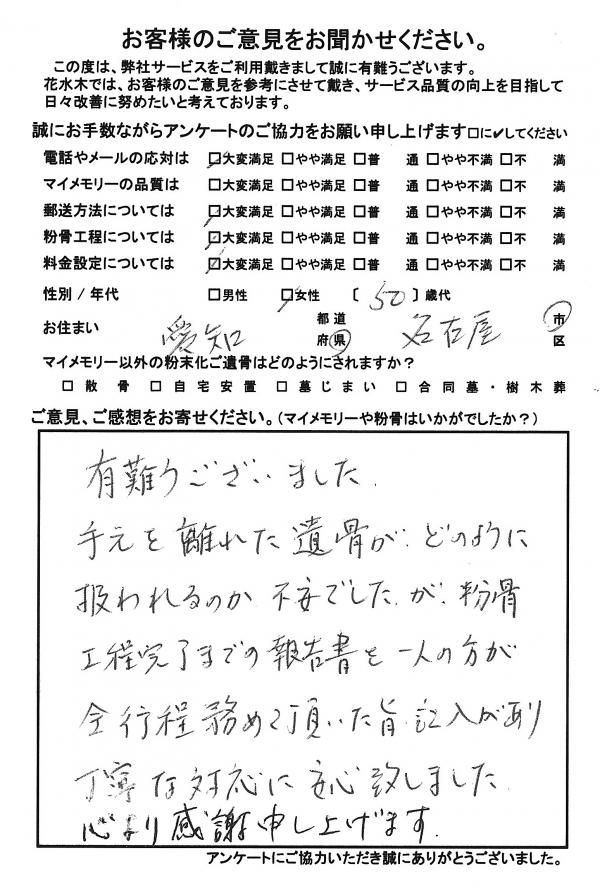 お客様のご意見をお聞かせください。
この度は、弊社サービスをご利用戴きまして誠に有難うございます。
花水木では、お客様のご意見を参考にさせて戴き、サービス品質の向上を目指して
日々改善に努めたいと考えております。
誠にお手数ながらアンケートのご協力をお願い申し上げます□に✔してください
電話やメールの応対は ☑大変満足 □やや満足 □普 通 □やや不満 □不 満
マイメモリーの品質は □大変満足 □やや満足 □普 通 □やや不満 □不 満
郵送方法については ☑大変満足 □やや満足 □普 通 □やや不満 □不 満
粉骨工程については ☑大変満足 □やや満足 □普 通 □やや不満 □不 満
料金設定については ☑大変満足 □やや満足 □普 通 □やや不満 □不 満
性別/年代 □男性 ☑女性 〔 50 〕歳代
お住まい 愛知 都道府県 名古屋 市区
マイメモリー以外の粉末化ご遺骨はどのようにされますか？
□ 散骨 □ 自宅安置 □ 墓じまい □ 合同墓・樹木葬
ご意見、ご感想をお寄せください。（マイメモリーや粉骨はいかがでしたか？）
有難うございました.
手元を離れた遺骨が、どのように
扱われるのか 不安でしたが、粉骨
工程完了までの報告書を一人の方が
全行程務めて頂いた旨、記入があり
丁寧な対応に安心致しました.
心より感謝申し上げます.
アンケートにご協力いただき誠にありがとうございました。